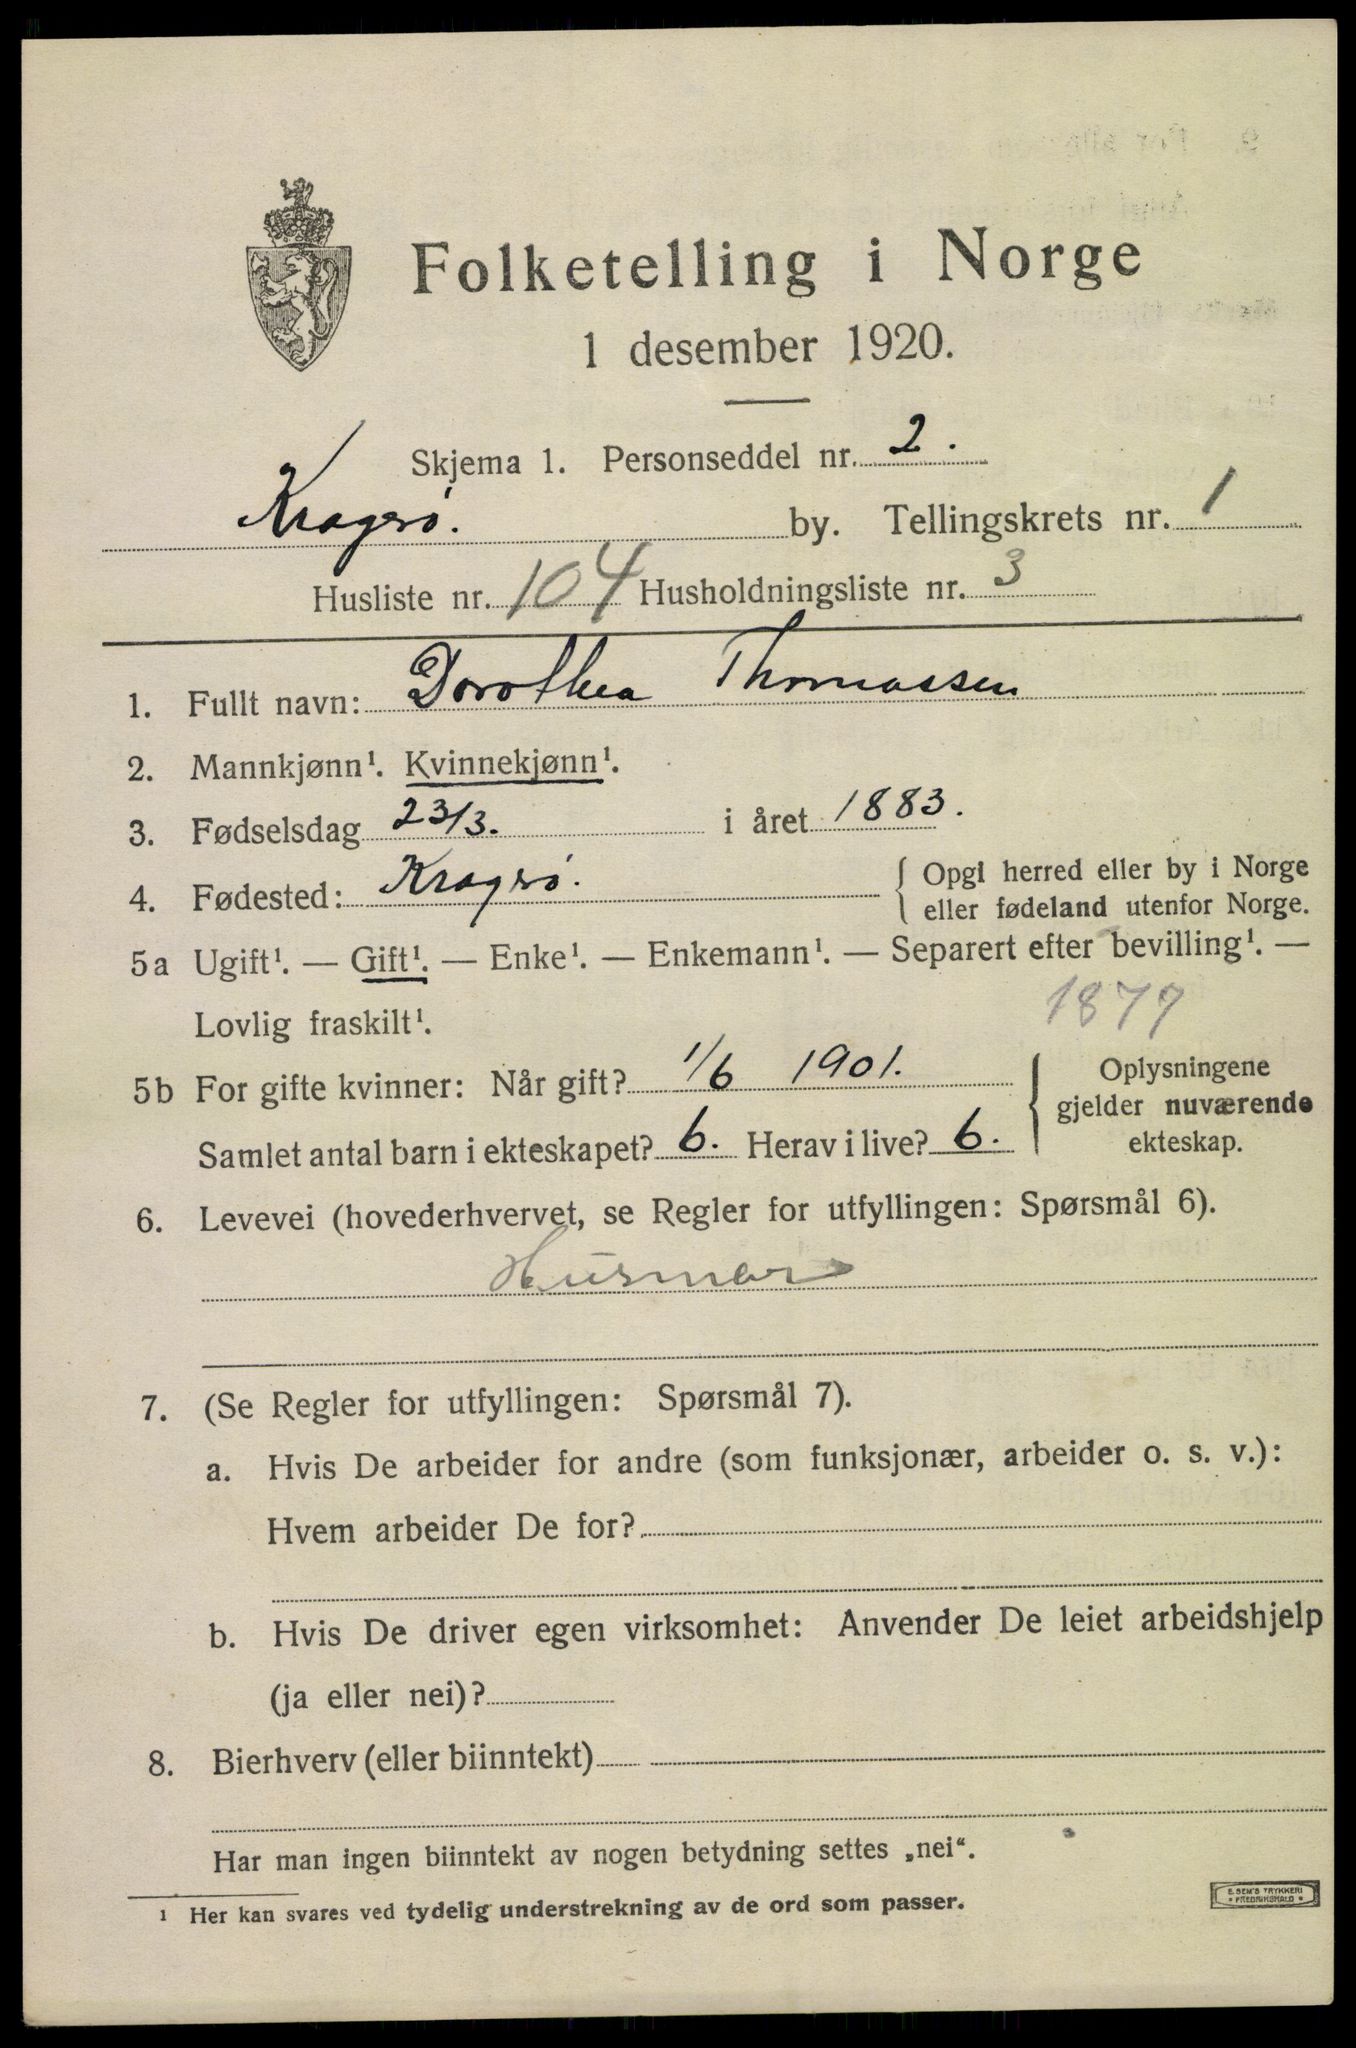 Folketelling i Norge
1 desember 1920.
Skjema 1. Personseddel nr. 2.
Kragerø. by. Tellingskrets nr. 1
Husliste nr. 104 Husholdningsliste nr. 3
1. Fullt navn: Dorothea Thomassen
2. Mannkjønn¹. Kvinnekjønn¹.
3. Fødselsdag 23/3. i året 1883.
4. Fødested: Kragerø. { Opgi herred eller by i Norge
eller fødeland utenfor Norge.
5a Ugift¹. — Gift¹. — Enke¹. — Enkemann¹. — Separert efter bevilling¹. —
Lovlig fraskilt¹. 1877
5b For gifte kvinner: Når gift? 1/6 1901.
Samlet antal barn i ekteskapet? 6. Herav i live? 6.
{ Oplysningene
gjelder nuværende
ekteskap.
6. Levevei (hovederhvervet, se Regler for utfyllingen: Spørsmål 6).
Husmor
7. (Se Regler for utfyllingen: Spørsmål 7).
a. Hvis De arbeider for andre (som funksjonær, arbeider o. s. v.):
Hvem arbeider De for?
b. Hvis De driver egen virksomhet: Anvender De leiet arbeidshjelp
(ja eller nei)?
8. Bierhverv (eller biinntekt)
Har man ingen biinntekt av nogen betydning settes „nei“.
¹ Her kan svares ved tydelig understrekning av de ord som passer.
E. SEM'S TRYKKERI
FREDRIKSHALD